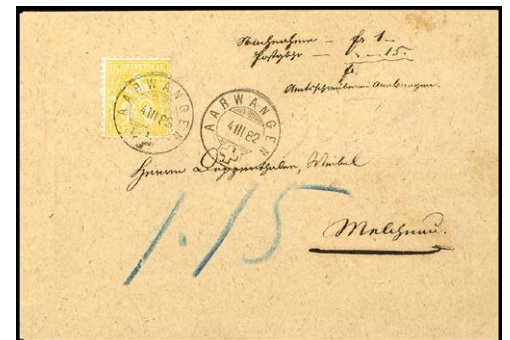 Nachnahme – Fr 1 –
Postgebr – „ – 15.
Fr.
Amtsschreiberei Aarwangen.
AARWANGEN
4 III 82
AARWANGEN
4 III 82
Herrn Weibel
1.15
Melchnau.